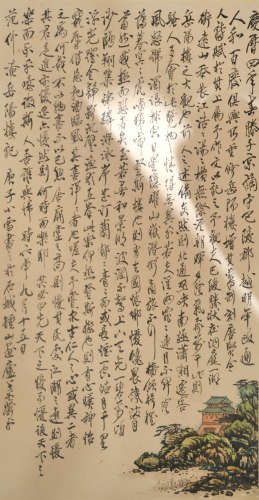 慶曆四年春滕子京謫守巴陵郡越明年政通
人和百廢俱興乃重修岳陽樓增其舊制刻唐賢今
人詩賦於其上屬予作文以記之予觀夫巴陵勝狀在洞庭一湖
銜遠山吞長江浩浩湯湯橫無際涯朝暉夕陰氣象萬千此則
岳陽樓之大觀也前人之述備矣然則北通巫峽南極瀟湘遷客
騷人多會於此覽物之情得無異乎若夫霪雨霏霏連月不開陰
風怒號濁浪排空日星隱曜山岳潛形商旅不行檣傾楫摧
薄暮冥冥虎嘯猿啼登斯樓也則有去國懷鄉憂讒畏譏滿目
蕭然感極而悲者矣至若春和景明波瀾不驚上下天光一碧萬頃
沙鷗翔集錦鱗游泳岸芷汀蘭郁郁青青而或長煙一空皓月千里
浮光躍金靜影沉璧漁歌互答此樂何極登斯樓也則有心曠神怡
寵辱偕忘把酒臨風其喜洋洋者矣嗟夫予嘗求古仁人之心或異二者
之為何哉不以物喜不以己悲居廟堂之高則憂其民處江湖之遠則憂
其君是進亦憂退亦憂然則何時而樂耶其必曰先天下之憂而憂後天下之
樂而樂乎噫微斯人吾誰與歸時六年九月十五日
范仲淹岳陽樓記 庚子小雪書於